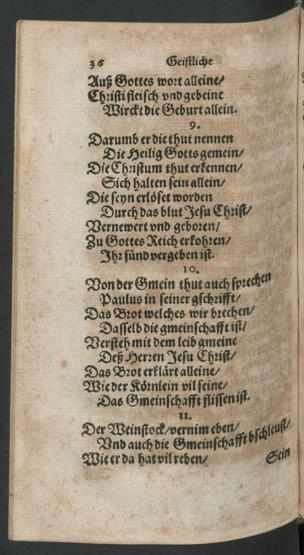 36 Geistliche
Auß Gottes wort alleine/
Christi fleisch vnd gebeine
Wirckt die Geburt allein.
9.
Darumb er die thut nennen
Die Heilig Gotts gemein/
Die Christum thut erkennen/
Sich halten sein allein/
Die seyn erlöset worden
Durch das blut Jesu Christ/
Vernewert vnd geboren/
Zu Gottes Reich erkohren/
Ihr sünd vergeben ist.
10.
Von der Gmein thut auch sprechen
Paulus in seiner gschrifft/
Das Brot welches wir brechen/
Dasselb die gmeinschafft ist/
Versteh mit dem leib gmeine
Deß Herren Jesu Christ/
Das Brot erklärt alleine/
Wie der Körnlein vil seine/
Das Gmeinschafft flissen ist.
11.
Der Weinstock/vernim eben/
Vnd auch die Gmeinschafft bschleust/
Wie er da hat vil reben/
Sein